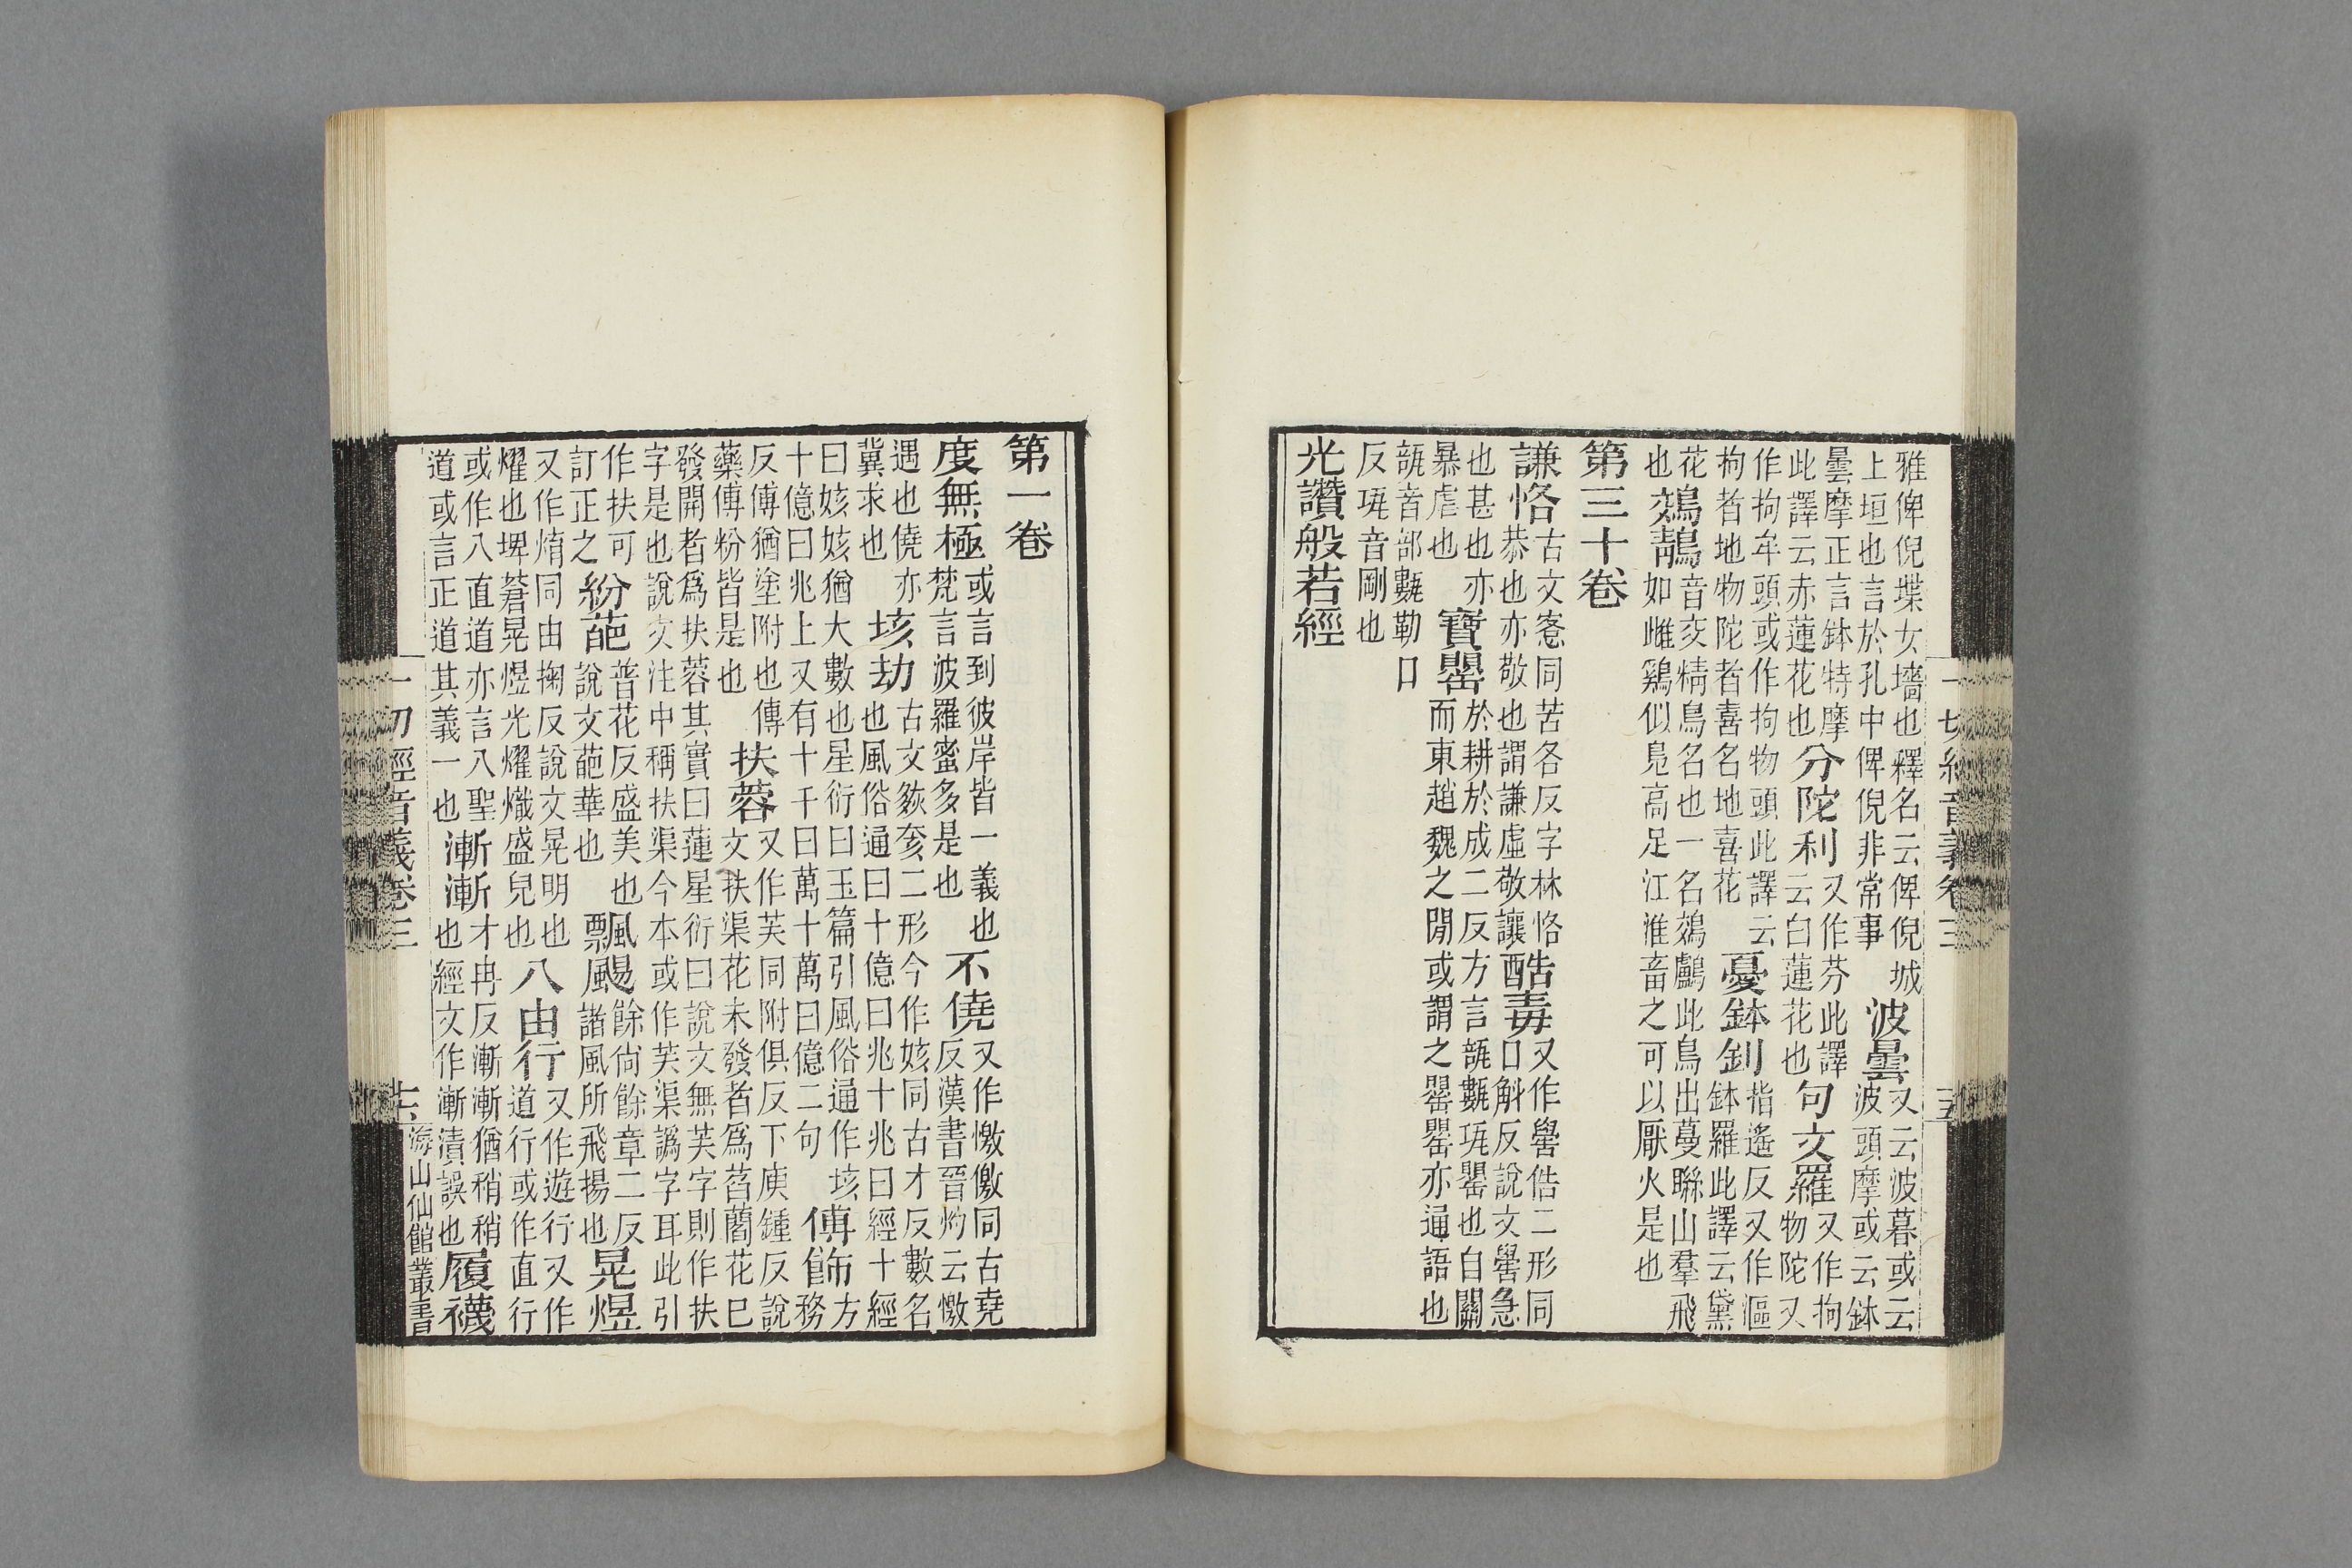 一切經音義卷三
雅俾倪堞女墻也釋名云俾倪城上垣也言於孔中俾倪非常事波曇又云波暮或云波頭摩或云鉢
曇摩正言鉢特摩此譯云赤蓮花也分陀利又作芬此譯云白蓮花也句文羅又作拘物陀又
作拘牟頭或作拘物頭此譯云拘者地物陀者喜名地喜花憂鉢釗指遙反又作漚鉢羅此譯云黛
花也鵁鶄音交精鳥名也一名鵁鸕此鳥出蔓聯山羣飛如雌鷄似鳧高足江淮畜之可以厭火是也
第三十卷
謙恪古文愙同苦各反字林恪恭也亦敬也謂謙虛敬讓酷毒又作嚳俈二形同口斛反說文嚳急
也甚也亦暴虐也寶罌於耕於成二反方言瓿甊㼚罌也自關而東趙魏之閒或謂之罌罌亦通語也
瓿音部甊勒口反㼚音剛也
光讚般若經
第一卷
度無極或言到彼岸皆一義也梵言波羅蜜多是也不僥又作憿儌同古堯反漢書晉灼云憿
遇也僥亦冀求也垓劫古文奒二形今作姟同古才反數名也風俗通曰十億曰兆十兆曰經十經
曰姟姟猶大數也星衍曰玉篇引風俗通作垓十億曰兆上又有十千曰萬十萬曰億二句傅飾方務
反傅猶塗附也傅藥傅粉皆是也扶蓉又作芙同附俱反下庾鍾反說文扶渠花未發者爲菡䕾花巳
發開者爲扶蓉其實曰蓮星衍曰說文無芙字則作扶字是也說文注中稱扶渠今本或作芙渠譌字耳此引
作扶可訂正之紛葩普花反盛美也說文葩華也飄颺餘尙餘章二反諧風所飛揚也晃煜
又作焴同由掬反說文晃明也燿也埤蒼晃煜光燿熾盛皃也八由行又作遊行又作道行或作直行
或作八直道亦言八聖道或言正道其義一也漸漸才冉反漸漸猶稍稍也經文作漸漬誤也履襪
一切經音義卷三
海山仙館叢書